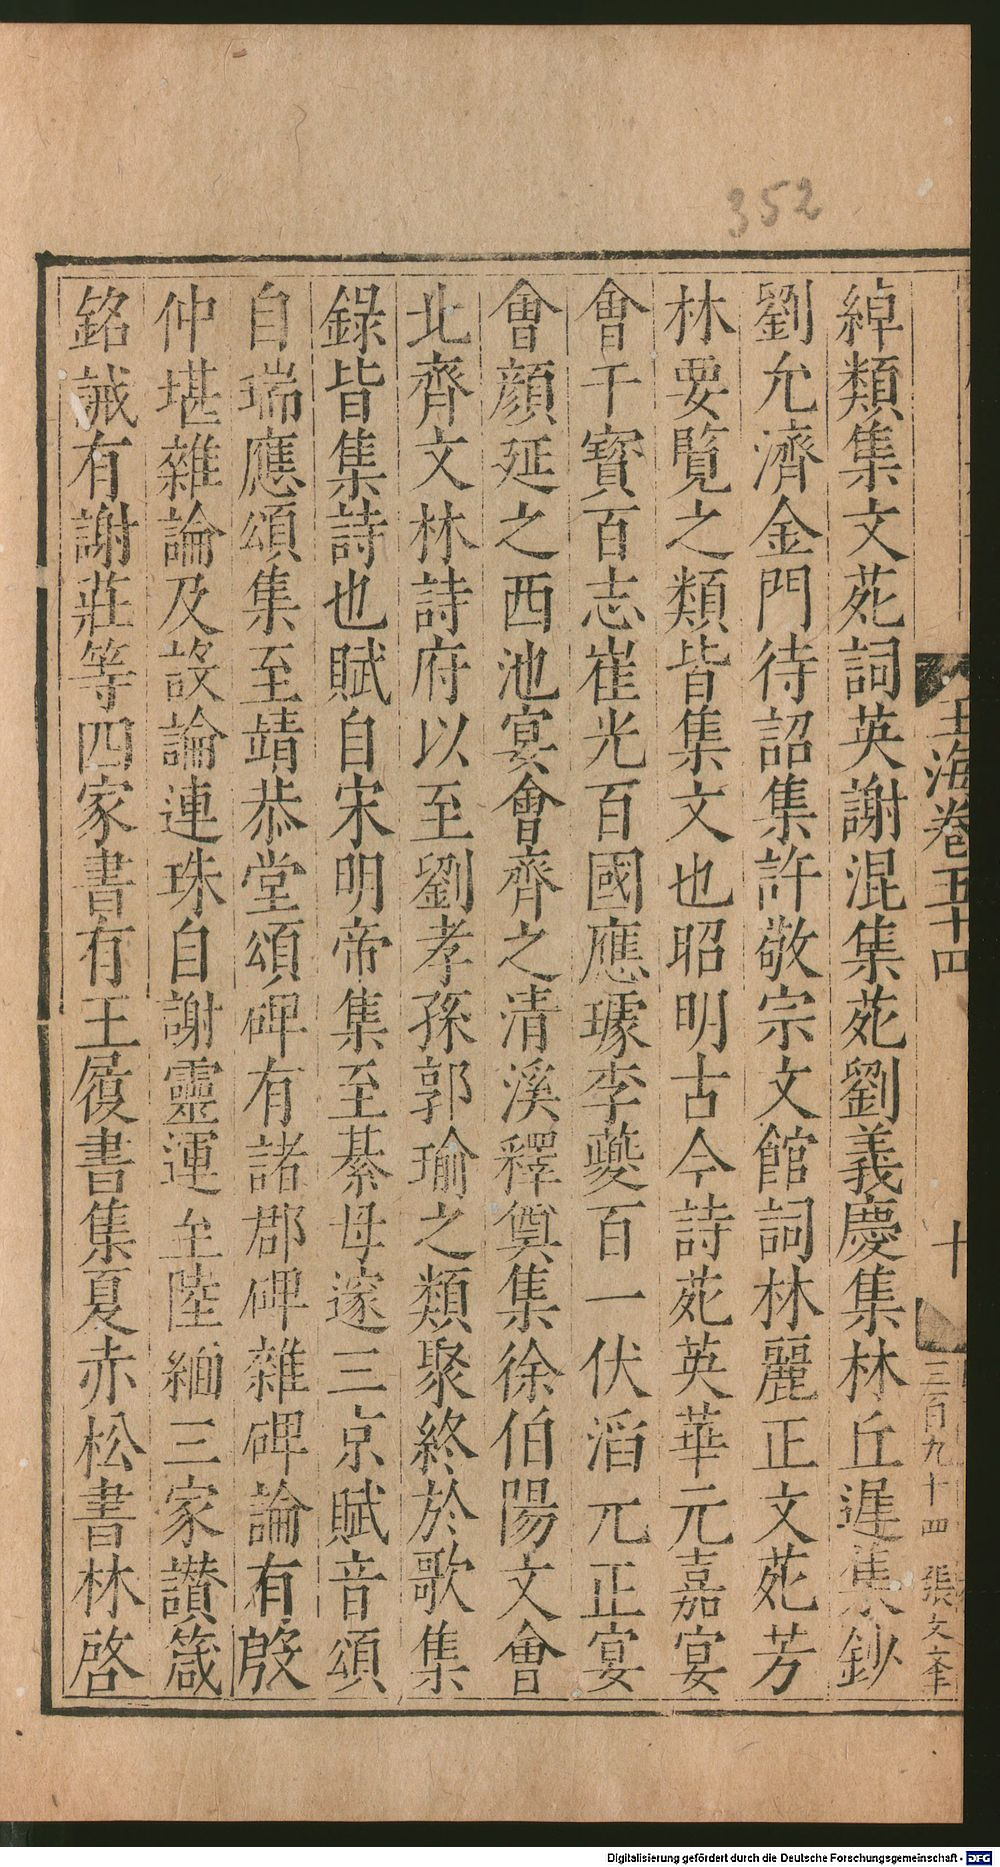 352
玉海卷五十四
十
三百九十四
張文奎
綽類集文苑詞英謝混集苑劉義慶集林丘遲集鈔
劉允濟金門待詔集許敬宗文館詞林麗正文苑芳
林要覽之類皆集文也昭明古今詩苑英華元嘉宴
會干寳百志崔光百國應璩李夔百一伏滔元正宴
會顔延之西池宴會齊之清溪釋奠集徐伯陽文會
北齊文林詩府以至劉孝孫郭瑜之類聚終於歌集
錄皆集詩也賦自宋明帝集至綦母邃三京賦音頌
自瑞應頌集至靖恭堂頌碑有諸郡碑雜碑論有殷
仲堪雜論及設論連珠自謝靈運至陸緬三家讃箴
銘誡有謝莊等四家書有王履書集夏赤松書林啓
Digitalisierung gefördert durch die Deutsche Forschungsgemeinschaft - DFG